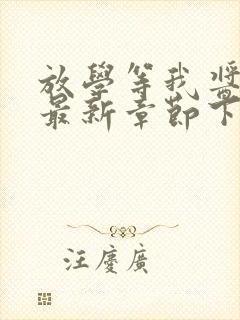 放學等我 醬
最新章節下
汪慶廣